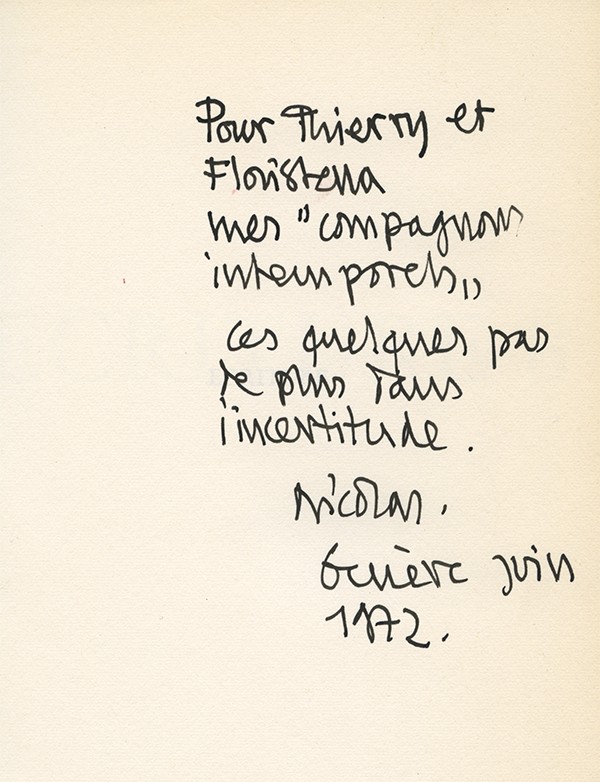 Pour Thierry et
Floristella
mes "compagnons
intemporels„
ces quelques pas
de plus dans
l'incertitude.
Nicolas.
Genève juin
1972.